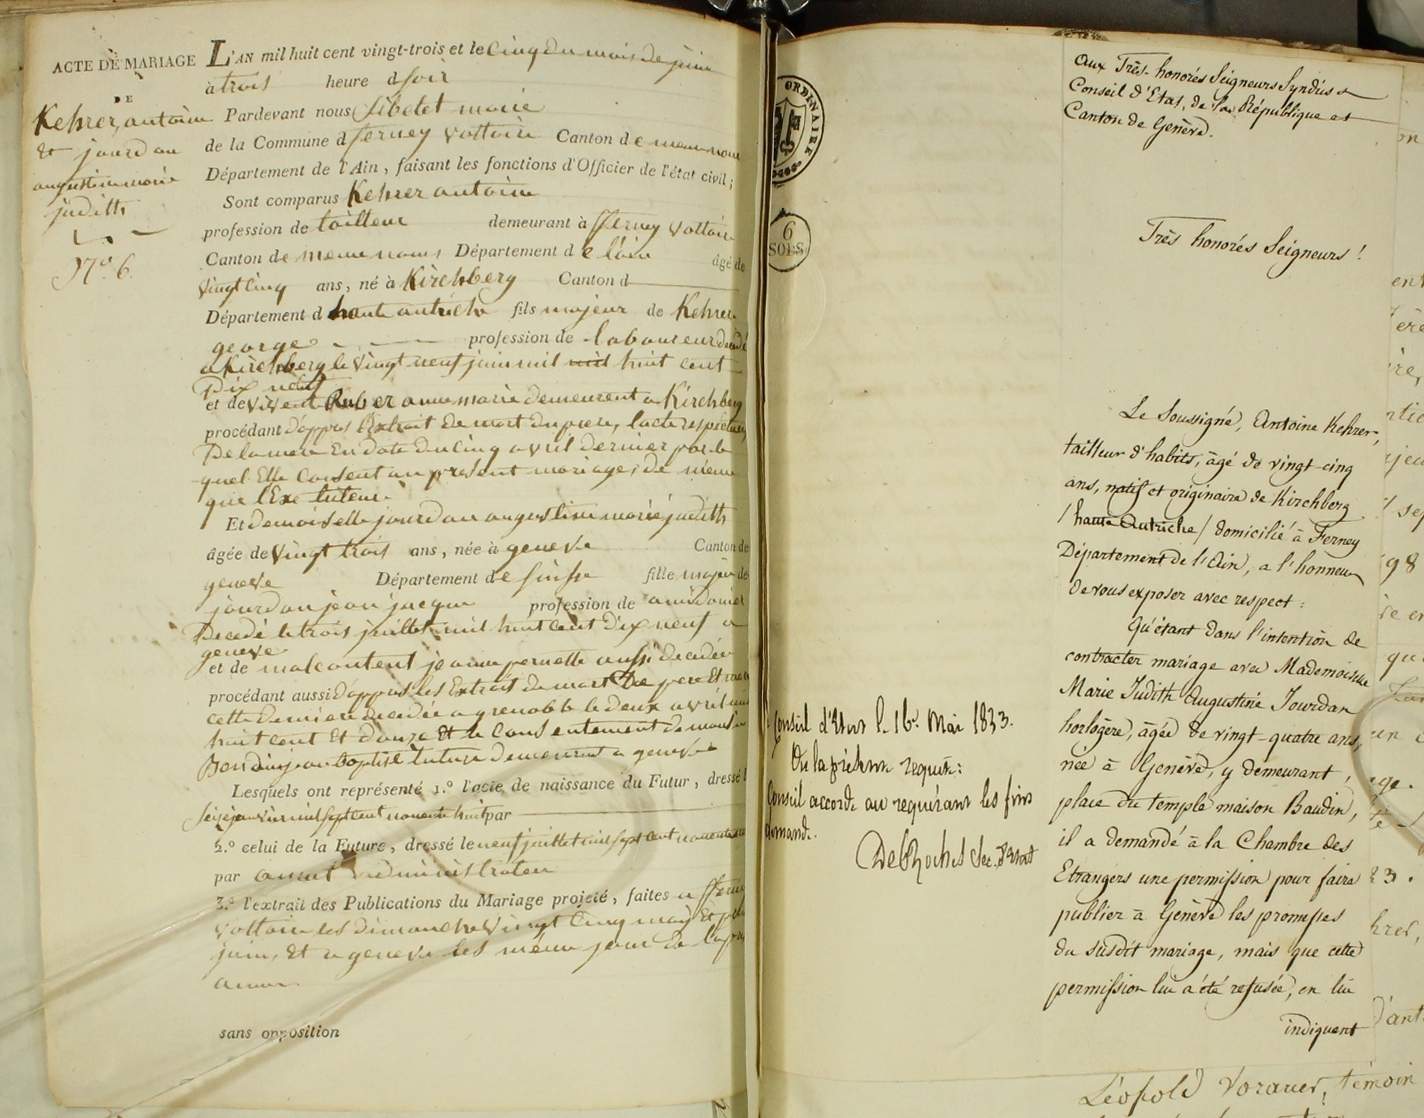 ACTE DE MARIAGE
DE
Kehrer, antoine
Et jourdan
augustine marie
judith
N.º 6.
L'AN mil huit cent vingt-trois et le cinq du mois de juin
à trois heure d soir
Pardevant nous maire
de la Commune d ferney voltaire Canton de meme nom
Département de l'Ain, faisant les fonctions d'Officier de l'état civil;
Sont comparus Kehrer antoine
profession de tailleur demeurant à fferney voltaire
Canton de meme nom Département de l'ain âgé de
vingt cinq ans, né à Kirchberg Canton d
Département d haute autriche fils majeur de Kehrer
george profession de laboureur décédé
a Kirchberg le vingt neuf juin mil mil huit cent
Dix neuf
et de vivente Ruber anne marie demeurent a Kirchberg
procédant d'appres l'Extrait de mort du pere, l'acte respectueux
De la mere En date du cinq avril dernier par le
quel Elle consent au present mariage, de meme
que l'Exe tuteur.
Et demoiselle jourdan augustine marie judith
âgée de vingt trois ans, née à geneve Canton de
geneve Département de suisse fille majeur de
jourdan jean jacque profession de
Decedé le trois juillet mil huit cent dix neuf a
geneve
et de malcontent jeanne pernette aussi decedée
procédant aussi d'appres les Extrait de mort De pere Et mere
cette derniere decedée a grenoble le deux avril mil
huit cent Et d'onze Et le consentement de monsieur
jean baptiste tuteur demeurent a geneve
Lesquels ont représenté 1.º l'acte de naissance du Futur, dressé le
seize janvier mil sept cent nonente huit par
2.º celui de la Future, dressé le neuf juillet mil sept cent nonente
par administrateur
3.º l'extrait des Publications du Mariage projeté, faites a fferney
voltaire les dimanche vingt cinq mai Et
juin, Et a geneve les meme jour de la
annee
sans opposition
ORDINAIRE
6
SOLS
Conseil d'Etat du 16 Mai 1823.
Vu la présente requête:
Conseil accorde au requérant les fins
demandé.
DesRoches Sec. d'Etat
Aux Très-honorés Seigneurs Syndics &
Conseil d'Etat, de la République et
Canton de Genève.
Très honorés Seigneurs!
Le Soussigné, Antoine Kehrer,
tailleur d'habits, âgé de vingt-cinq
ans, natif et originaire de Kirchberg
/haute Autriche/ domicilié à Ferney
Département de l'Ain, a l'honneur
de vous exposer avec respect:
Qu'étant dans l'intention de
contracter mariage avec Mademoiselle
Marie Judith Augustine Jourdan
horlogère, âgée de vingt-quatre ans,
née à Genève, y demeurant,
place du temple maison Baudin,
il a demandé à la Chambre des
Etrangers une permission pour faire
publier à Genève les promesses
du susdit mariage, mais que cette
permission lui a été refusée, en lui
indiquant
Léopold Vorauer, témoin